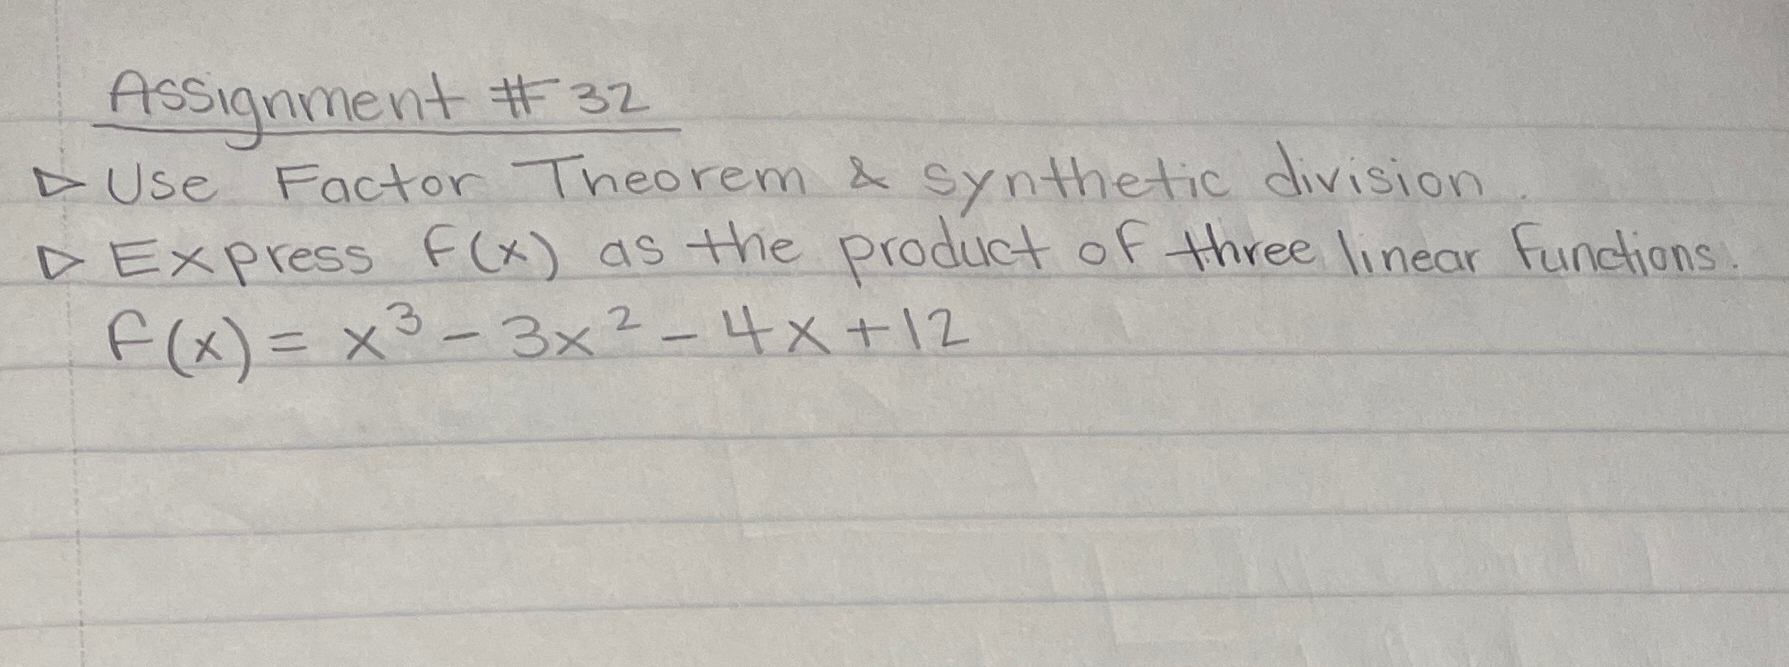 Assignment # 32
▷ Use Factor Theorem & synthetic division.
▷ Express f(x) as the product of three linear functions.
f(x) = x³ - 3x² - 4x + 12